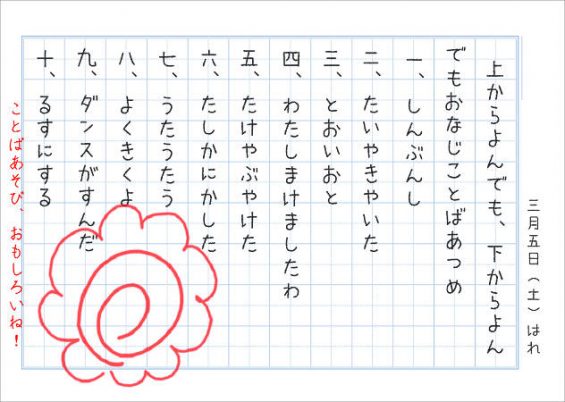 三月五日（土）はれ
上からよんでも、下からよん
でもおなじことばあつめ
一、しんぶんし
二、たいやきやいた
三、とおいおと
四、わたしまけましたわ
五、たけやぶやけた
六、たしかにかした
七、うたうたう
八、よくきくよ
九、ダンスがすんだ
十、るすにする
ことばあそび、おもしろいね！